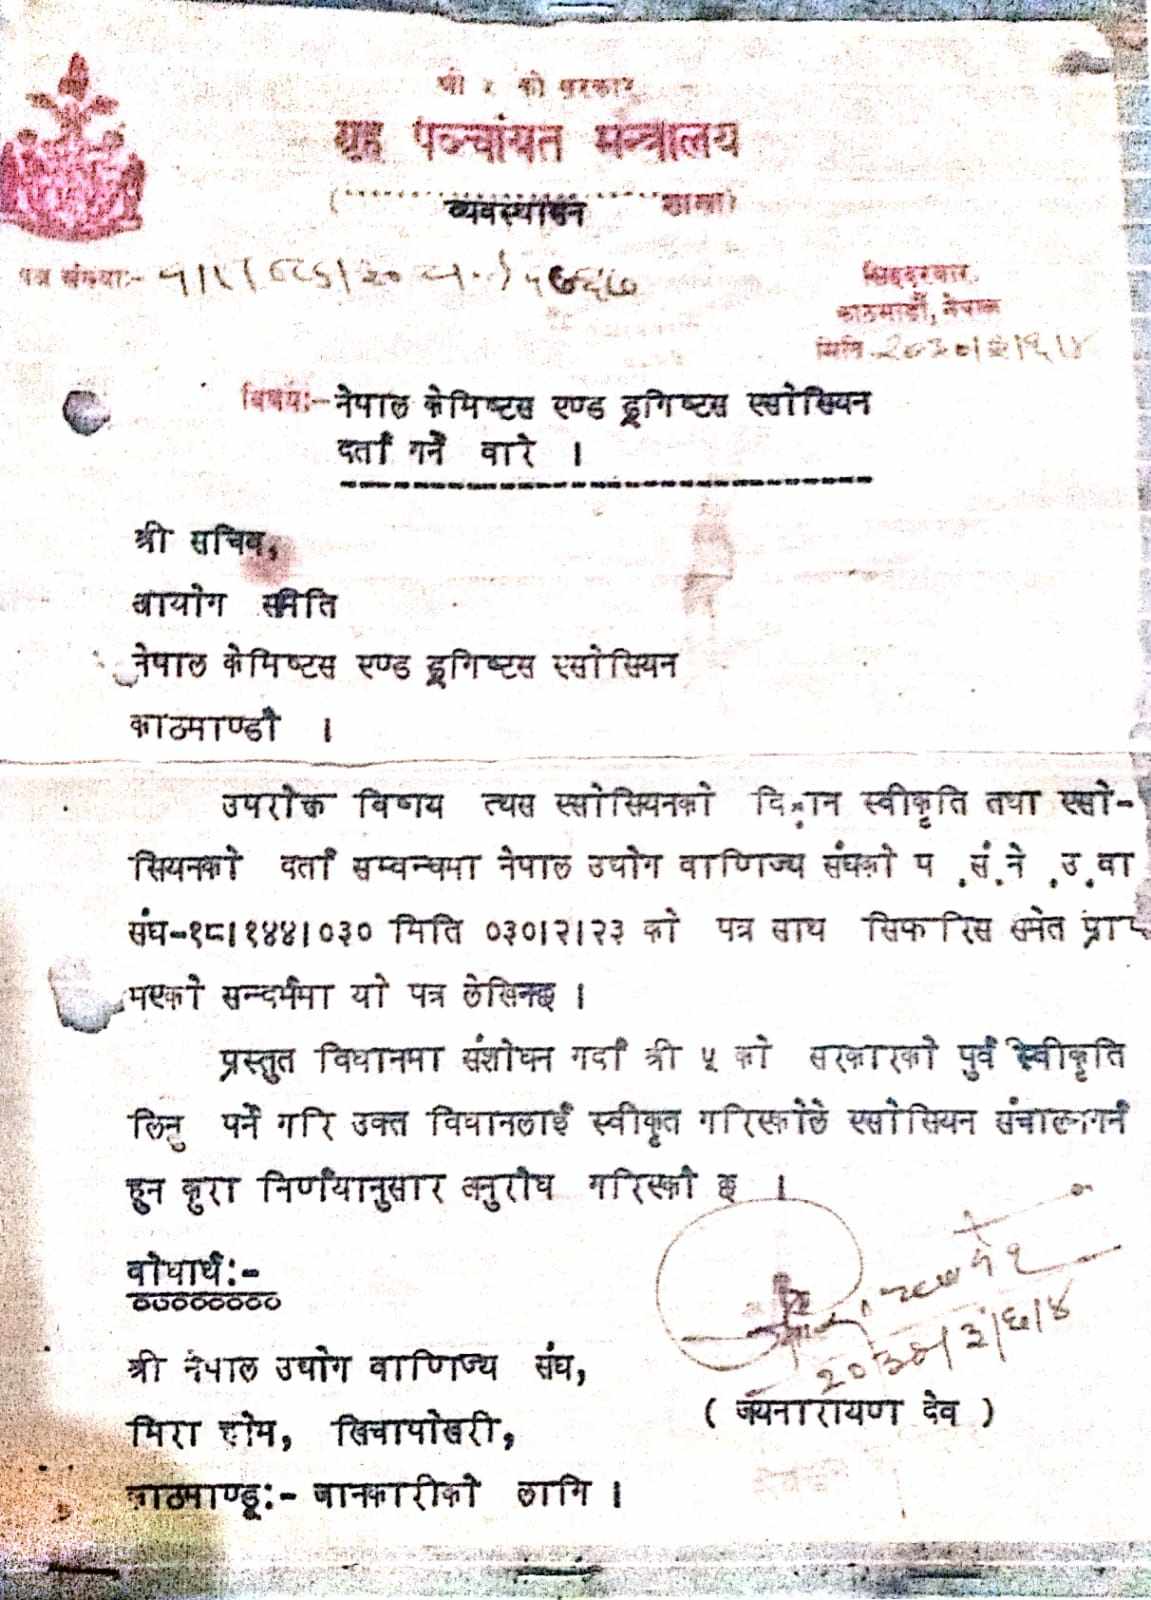 श्री ५ को सरकार
गृह पञ्चायत मन्त्रालय
( व्यवस्थापन शाखा)
पत्र संख्याः-
सिंहदरवार,
काठमाडौं, नेपाल
मिति
विषयः- नेपाल केमिष्टस एण्ड ड्रगिष्टस एसोसियन
दर्ता गर्ने वारे ।
श्री सचिव,
आयोग समिति
नेपाल केमिष्टस एण्ड ड्रगिष्टस एसोसियन
काठमाण्डौ ।
उपरोक्त विषय त्यस एसोसियनको विधान स्वीकृति तथा एसो-
सियनको दर्ता सम्वन्धमा नेपाल उद्योग वाणिज्य संघको प .सं.ने .उ.वा
संघ-१८।१४४।०३० मिति ०३०।२।२३ को पत्र साथ सिफारिस समेत प्राप्त
भएको सन्दर्भमा यो पत्र लेखिन्छ ।
प्रस्तुत विधानमा संशोधन गर्दा श्री ५ को सरकारको पुर्व स्वीकृति
लिनु पर्ने गरि उक्त विधानलाई स्वीकृत गरिएकोले एसोसियन संचालनगर्न
हुन कुरा निर्णयानुसार अनुरोध गरिएको छ ।
वोधार्थः-
श्री नेपाल उद्योग वाणिज्य संघ,
मिरा होम, खिचापोखरी,
काठमाण्डूः- जानकारीको लागि ।
( जयनारायण देव )